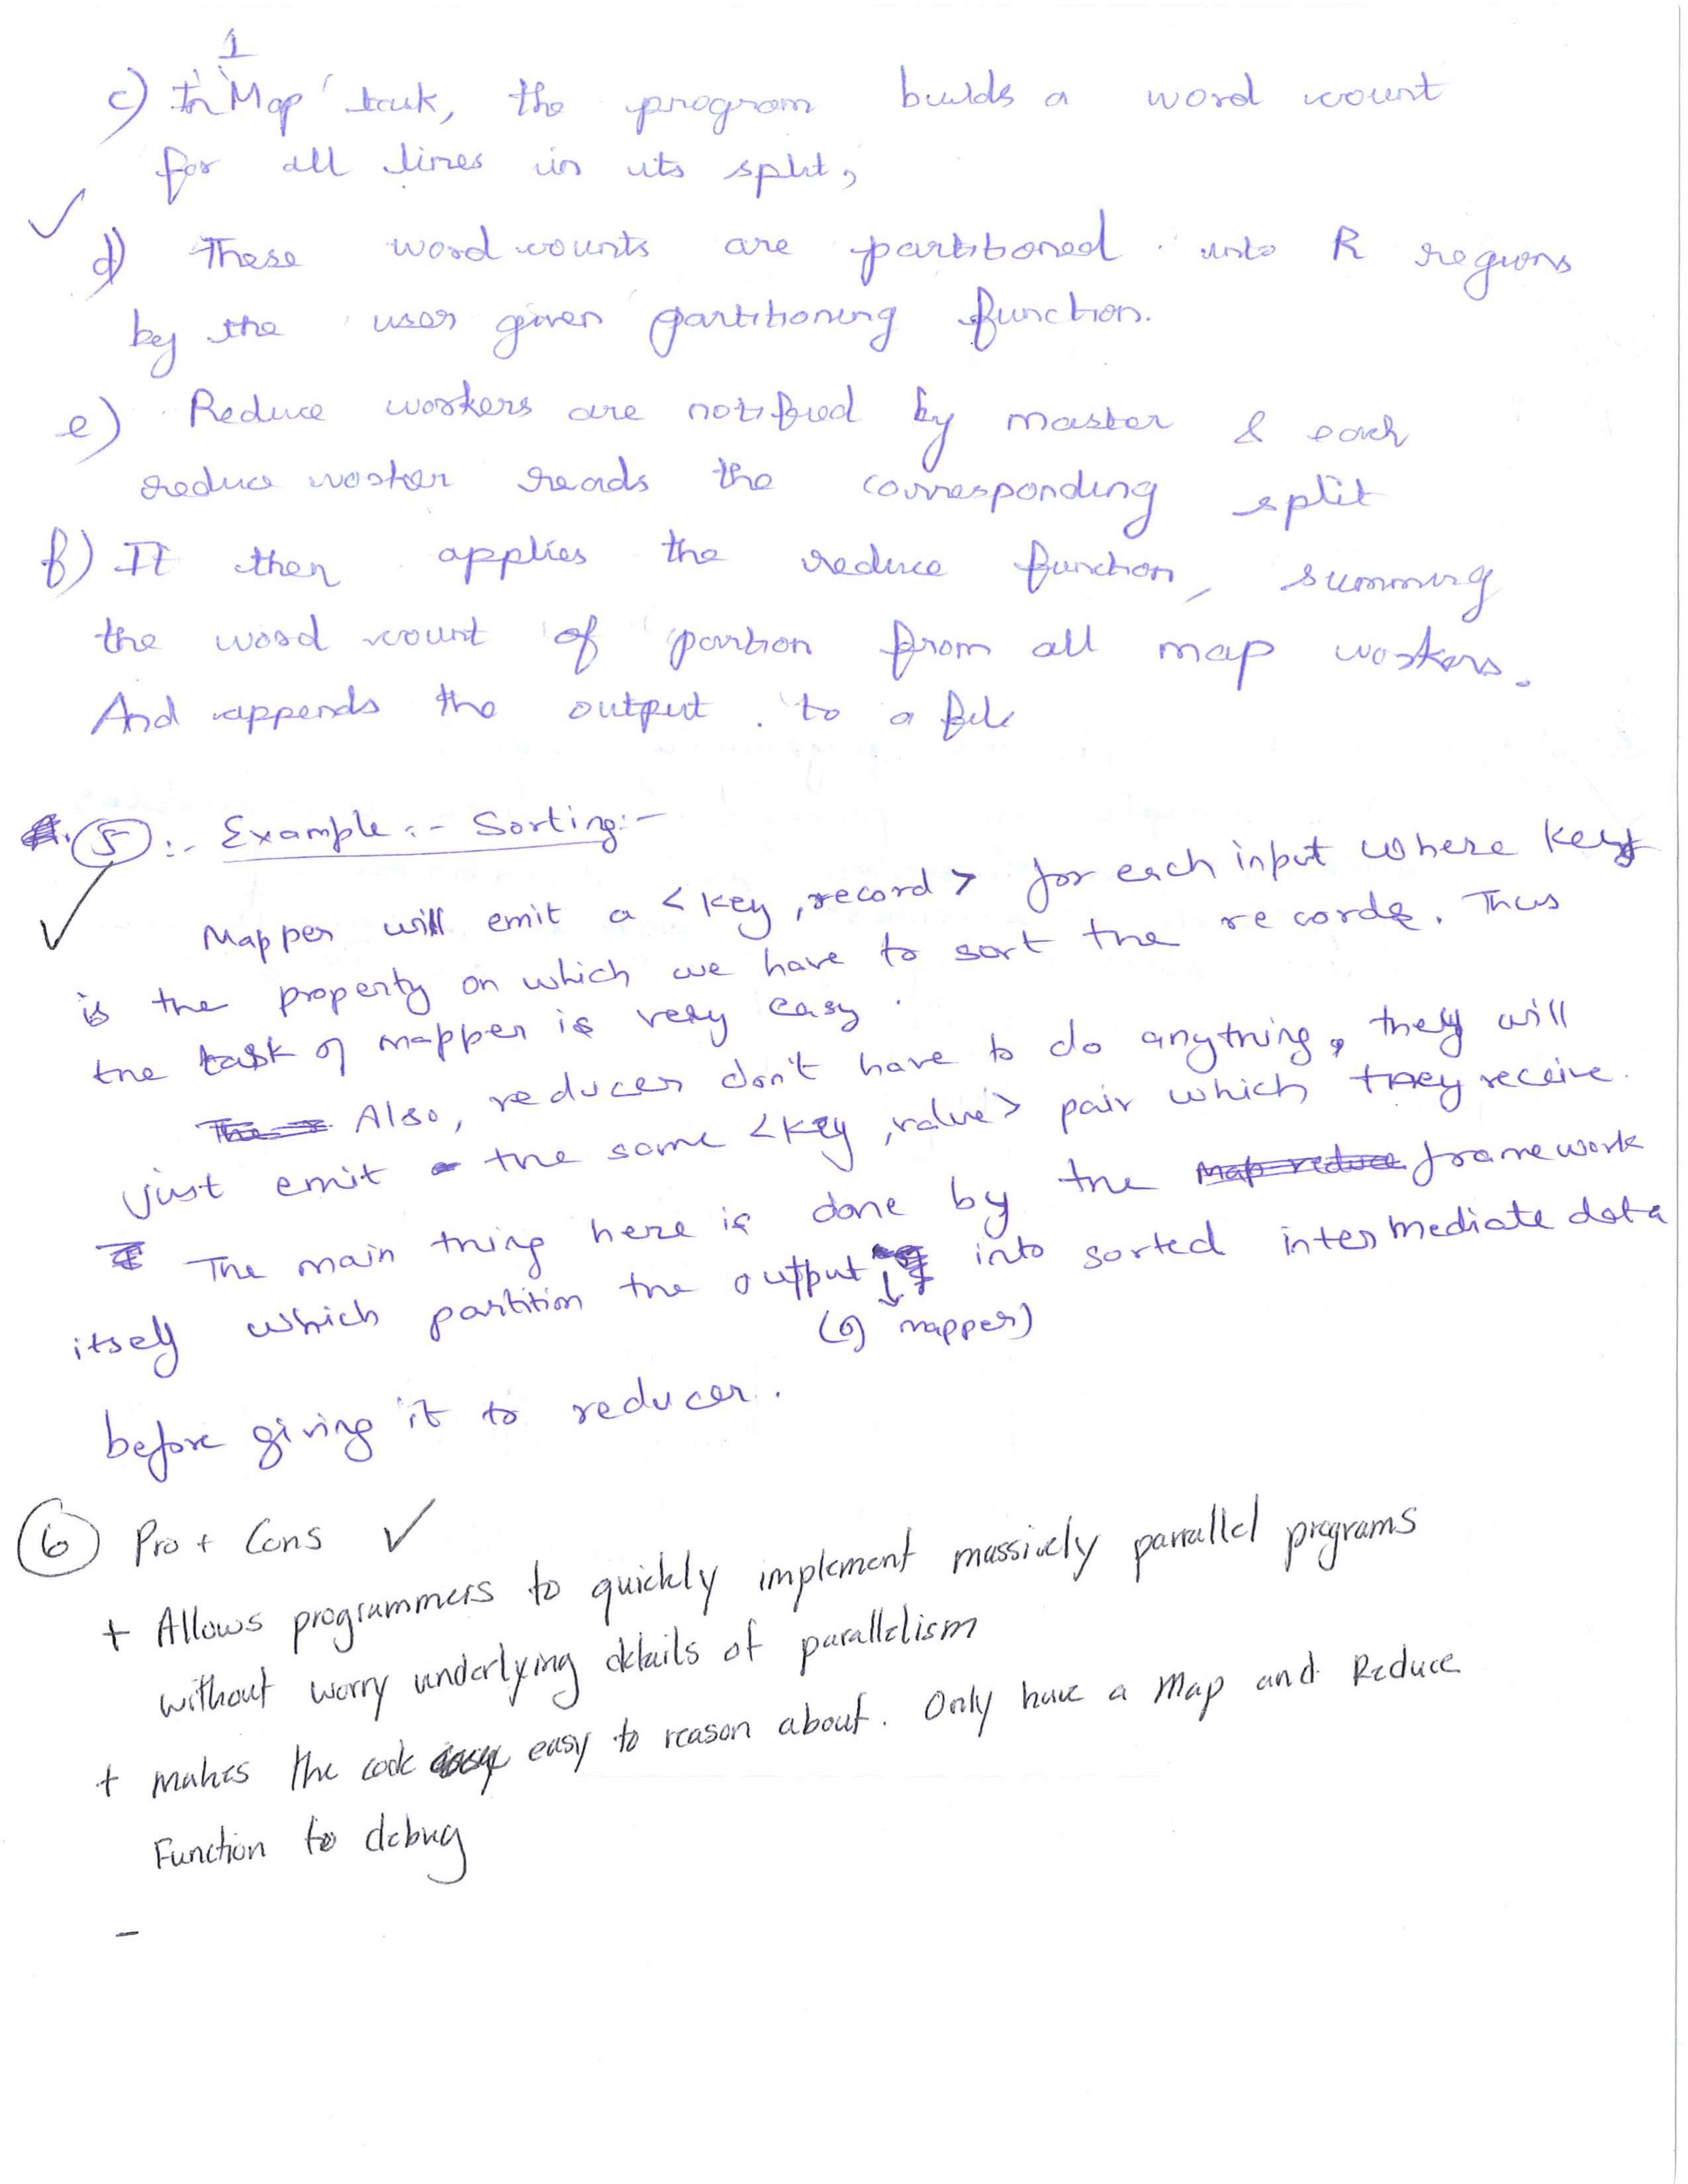 1
c) In 'Map' task, the program builds a word count
for all lines in its split,
d) These word counts are partitioned into R regions
by the user given partitioning function.
e) Reduce workers are notified by master & each
reduce worker reads the corresponding split
f) It then applies the reduce function, summing
the word count of partion from all map workers.
And appends the output to a file
5 :- Example :- Sorting :-
Mapper will emit a <key, record> for each input where key
is the property on which we have to sort the records. Thus
the task of mapper is very easy.
Also, reducer don't have to do anything, they will
just emit the same <key, value> pair which they receive.
The main thing here is done by the Map reduce framework
itself which partition the output into sorted intermediate data
(of mapper)
before giving it to reducer.
6 Pro + Cons
+ Allows programmers to quickly implement massively parrallel programs
without worry underlying details of parallelism
+ makes the code easy to reason about. Only have a Map and Reduce
Function to debug
-